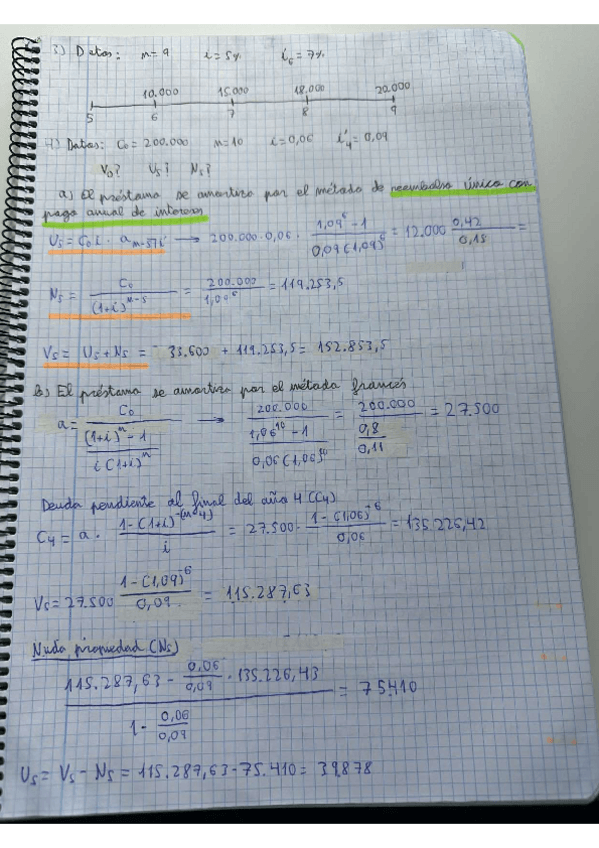 3) Datos: n=9 i=5% i₆=7%
10.000 15.000 18.000 20.000
5 6 7 8 9
4) Datos: C₀=200.000 n=10 i=0,06 i'₄=0,09
V₅? U₅? N₅?
a) El préstamo se amortiza por el método de reembolso único con
pago anual de intereses
U₅ = C₀ i · a → 200.000·0,06 · (1,09⁶ - 1)/(0,09(1,09)⁶ = 12.000 0,42/0,15 =
N₅ = C₀/(1+i)ⁿ⁻⁵ = 200.000/1,09⁶ = 119.253,5
V₅ = U₅ + N₅ = 33.600 + 119.253,5 = 152.853,5
b) El préstamo se amortiza por el método francés
a = C₀/(((1+i)ⁿ - 1)/(i(1+i)ⁿ)) → 200.000/((1,06¹⁰ - 1)/(0,06(1,06)¹⁰)) = 200.000/(0,8/0,11) = 27.500
Deuda pendiente al final del año 4 (C₄)
C₄ = a · (1-(1+i)⁻⁽ⁿ⁻⁴⁾)/i = 27.500 · (1-(1,06)⁻⁶)/0,06 = 135.226,42
V₅ = 27.500 (1-(1,09)⁻⁶)/0,09 = 115.287,63
Nuda propiedad (N₅)
(115.287,63 - 0,06/0,09 · 135.226,43)/(1 - 0,06/0,09) = 75410
U₅ = V₅ - N₅ = 115.287,63 - 75.410 = 39.878